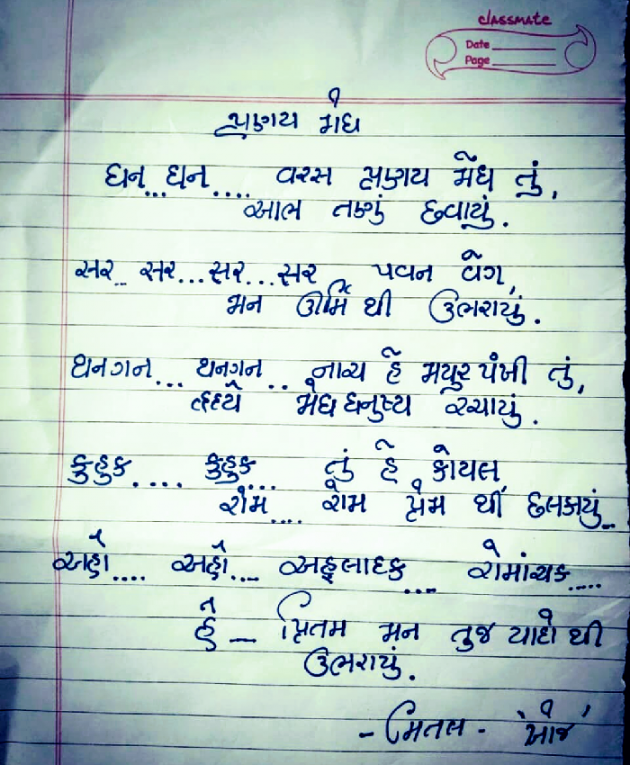 classmate
Date
Page
પ્રણય મેઘ
ઘન... ઘન.... વરસ પ્રણય મેઘ તું,
આભ તણું છવાયું.
સર... સર...સર...સર પવન વેગ,
મન ઊર્મિ થી ઉભરાયું.
થનગન... થનગન.. નાચ હે મયુર પંખી તું,
હ્રદયે મેઘ ધનુષ્ય રચાયું.
કુહુક.... કુહુક.... તું હે કોયલ,
રોમ.... રોમ પ્રેમ થી છલકાયું...
અહો.... અહો.... અહલાદક .... રોમાંચક.....
હે — પ્રિતમ મન તુજ યાદો થી
ઉભરાયું.
- મિતલ - 'ઓજ'